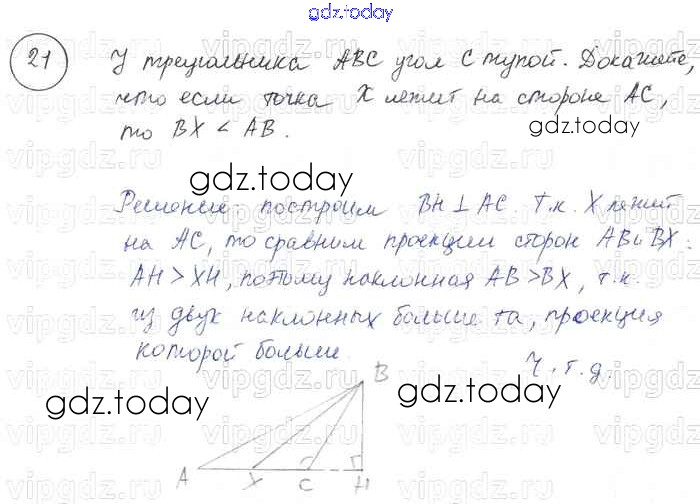 gdz.today
21 У треугольника ABC угол C тупой. Докажите,
что если точка X лежит на стороне AC,
то BX < AB.
gdz.today
gdz.today
Решение: построим BH ⊥ AC. Т.к. X лежит
на AC, то сравним проекции сторон AB и BX.
AH > XH, поэтому наклонная AB > BX, т.к.
из двух наклонных больше та, проекция
которой больше.
Ч.т.д.
B
gdz.today
gdz.today
A X C H